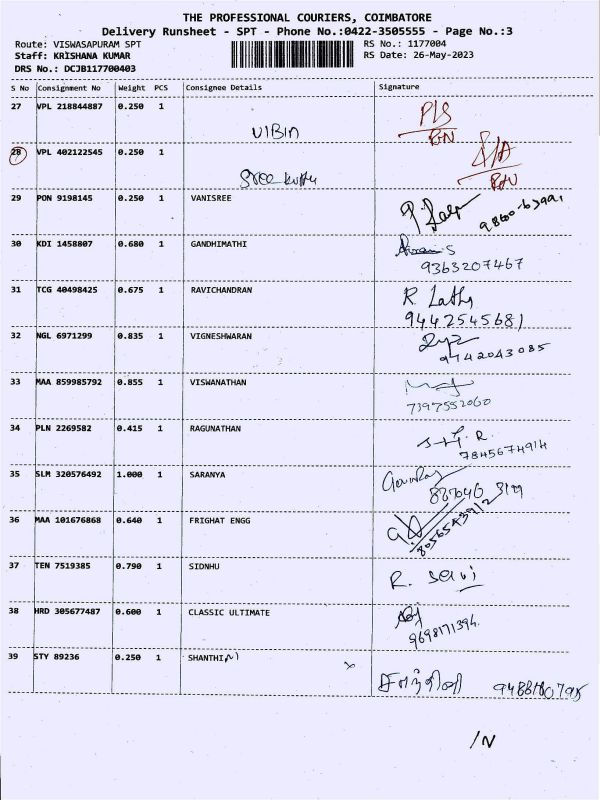 THE PROFESSIONAL COURIERS, COIMBATORE
Delivery Runsheet - SPT - Phone No.:0422-3505555 - Page No.:3
Route: VISWASAPURAM SPT RS No.: 1177004
Staff: KRISHANA KUMAR RS Date: 26-May-2023
DRS No.: DCJB117700403
S No Consignment No Weight PCS Consignee Details Signature
27 VPL 218844887 0.250 1 VIBIN
28 VPL 402122545 0.250 1
29 PON 9198145 0.250 1 VANISREE
30 KDI 1458807 0.680 1 GANDHIMATHI
9363207467
31 TCG 40498425 0.675 1 RAVICHANDRAN R. Latha
9442545681
32 NGL 6971299 0.835 1 VIGNESHWARAN
9742043085
33 MAA 859985792 0.855 1 VISWANATHAN
7197552060
34 PLN 2269582 0.415 1 RAGUNATHAN
7845674914
35 SLM 320576492 1.000 1 SARANYA
36 MAA 101676868 0.640 1 FRIGHAT ENGG
37 TEN 7519385 0.790 1 SIDNHU R. Selvi
38 HRD 305677487 0.600 1 CLASSIC ULTIMATE
9698171394
39 STY 89236 0.250 1 SHANTHINI
சாந்தினி
/N